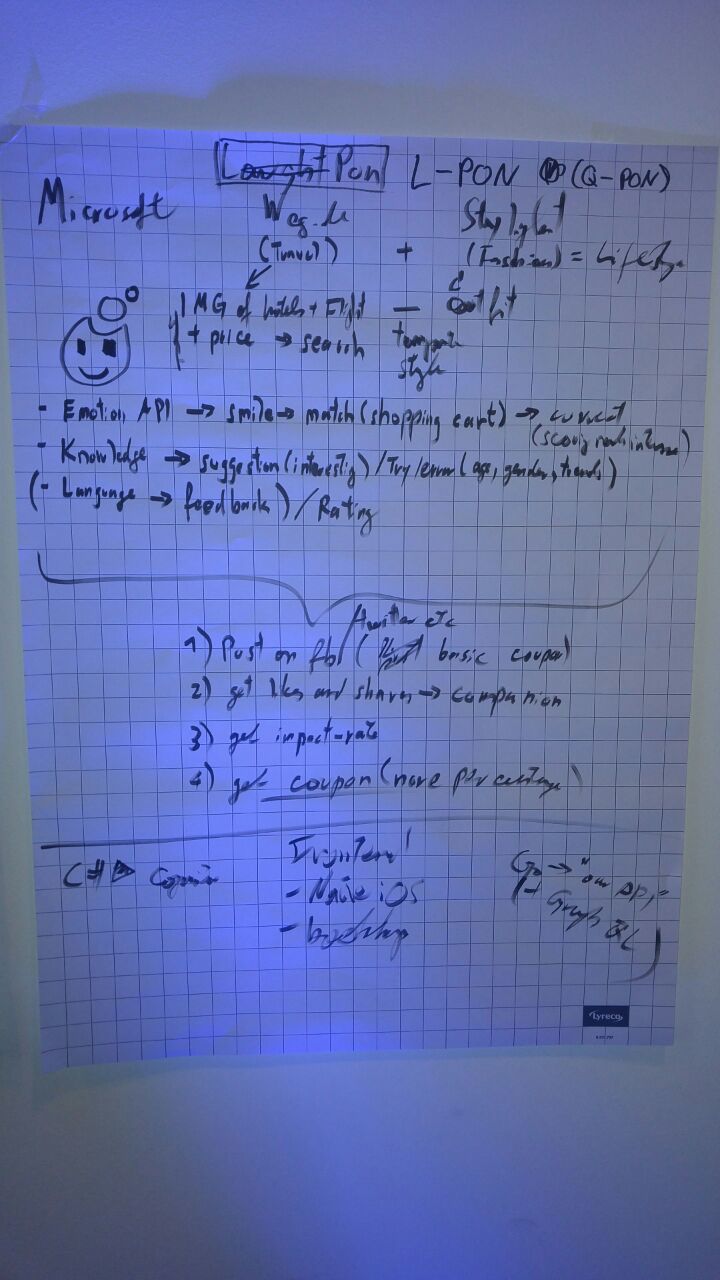 Pon L-PON (Q-PON)
Microsoft
(Travel) + (Fashion) = Lifestyle
IMG of hotels + Flight — outfit
+ price → search template
style
- Emotion API → smile → match (shopping cart) →
- Knowledge → suggestion (interestig) / Try/error (age, gender, trends)
(- Language → feedback) / Rating
/twitter etc
1) Post on fb ( basic coupon)
2) get likes and shares → companion
3) get impact-rate
4) get coupon (more percentage)
C#
Frontend!
- Native iOS
Go → "our API"
Graph QL
Lyreco